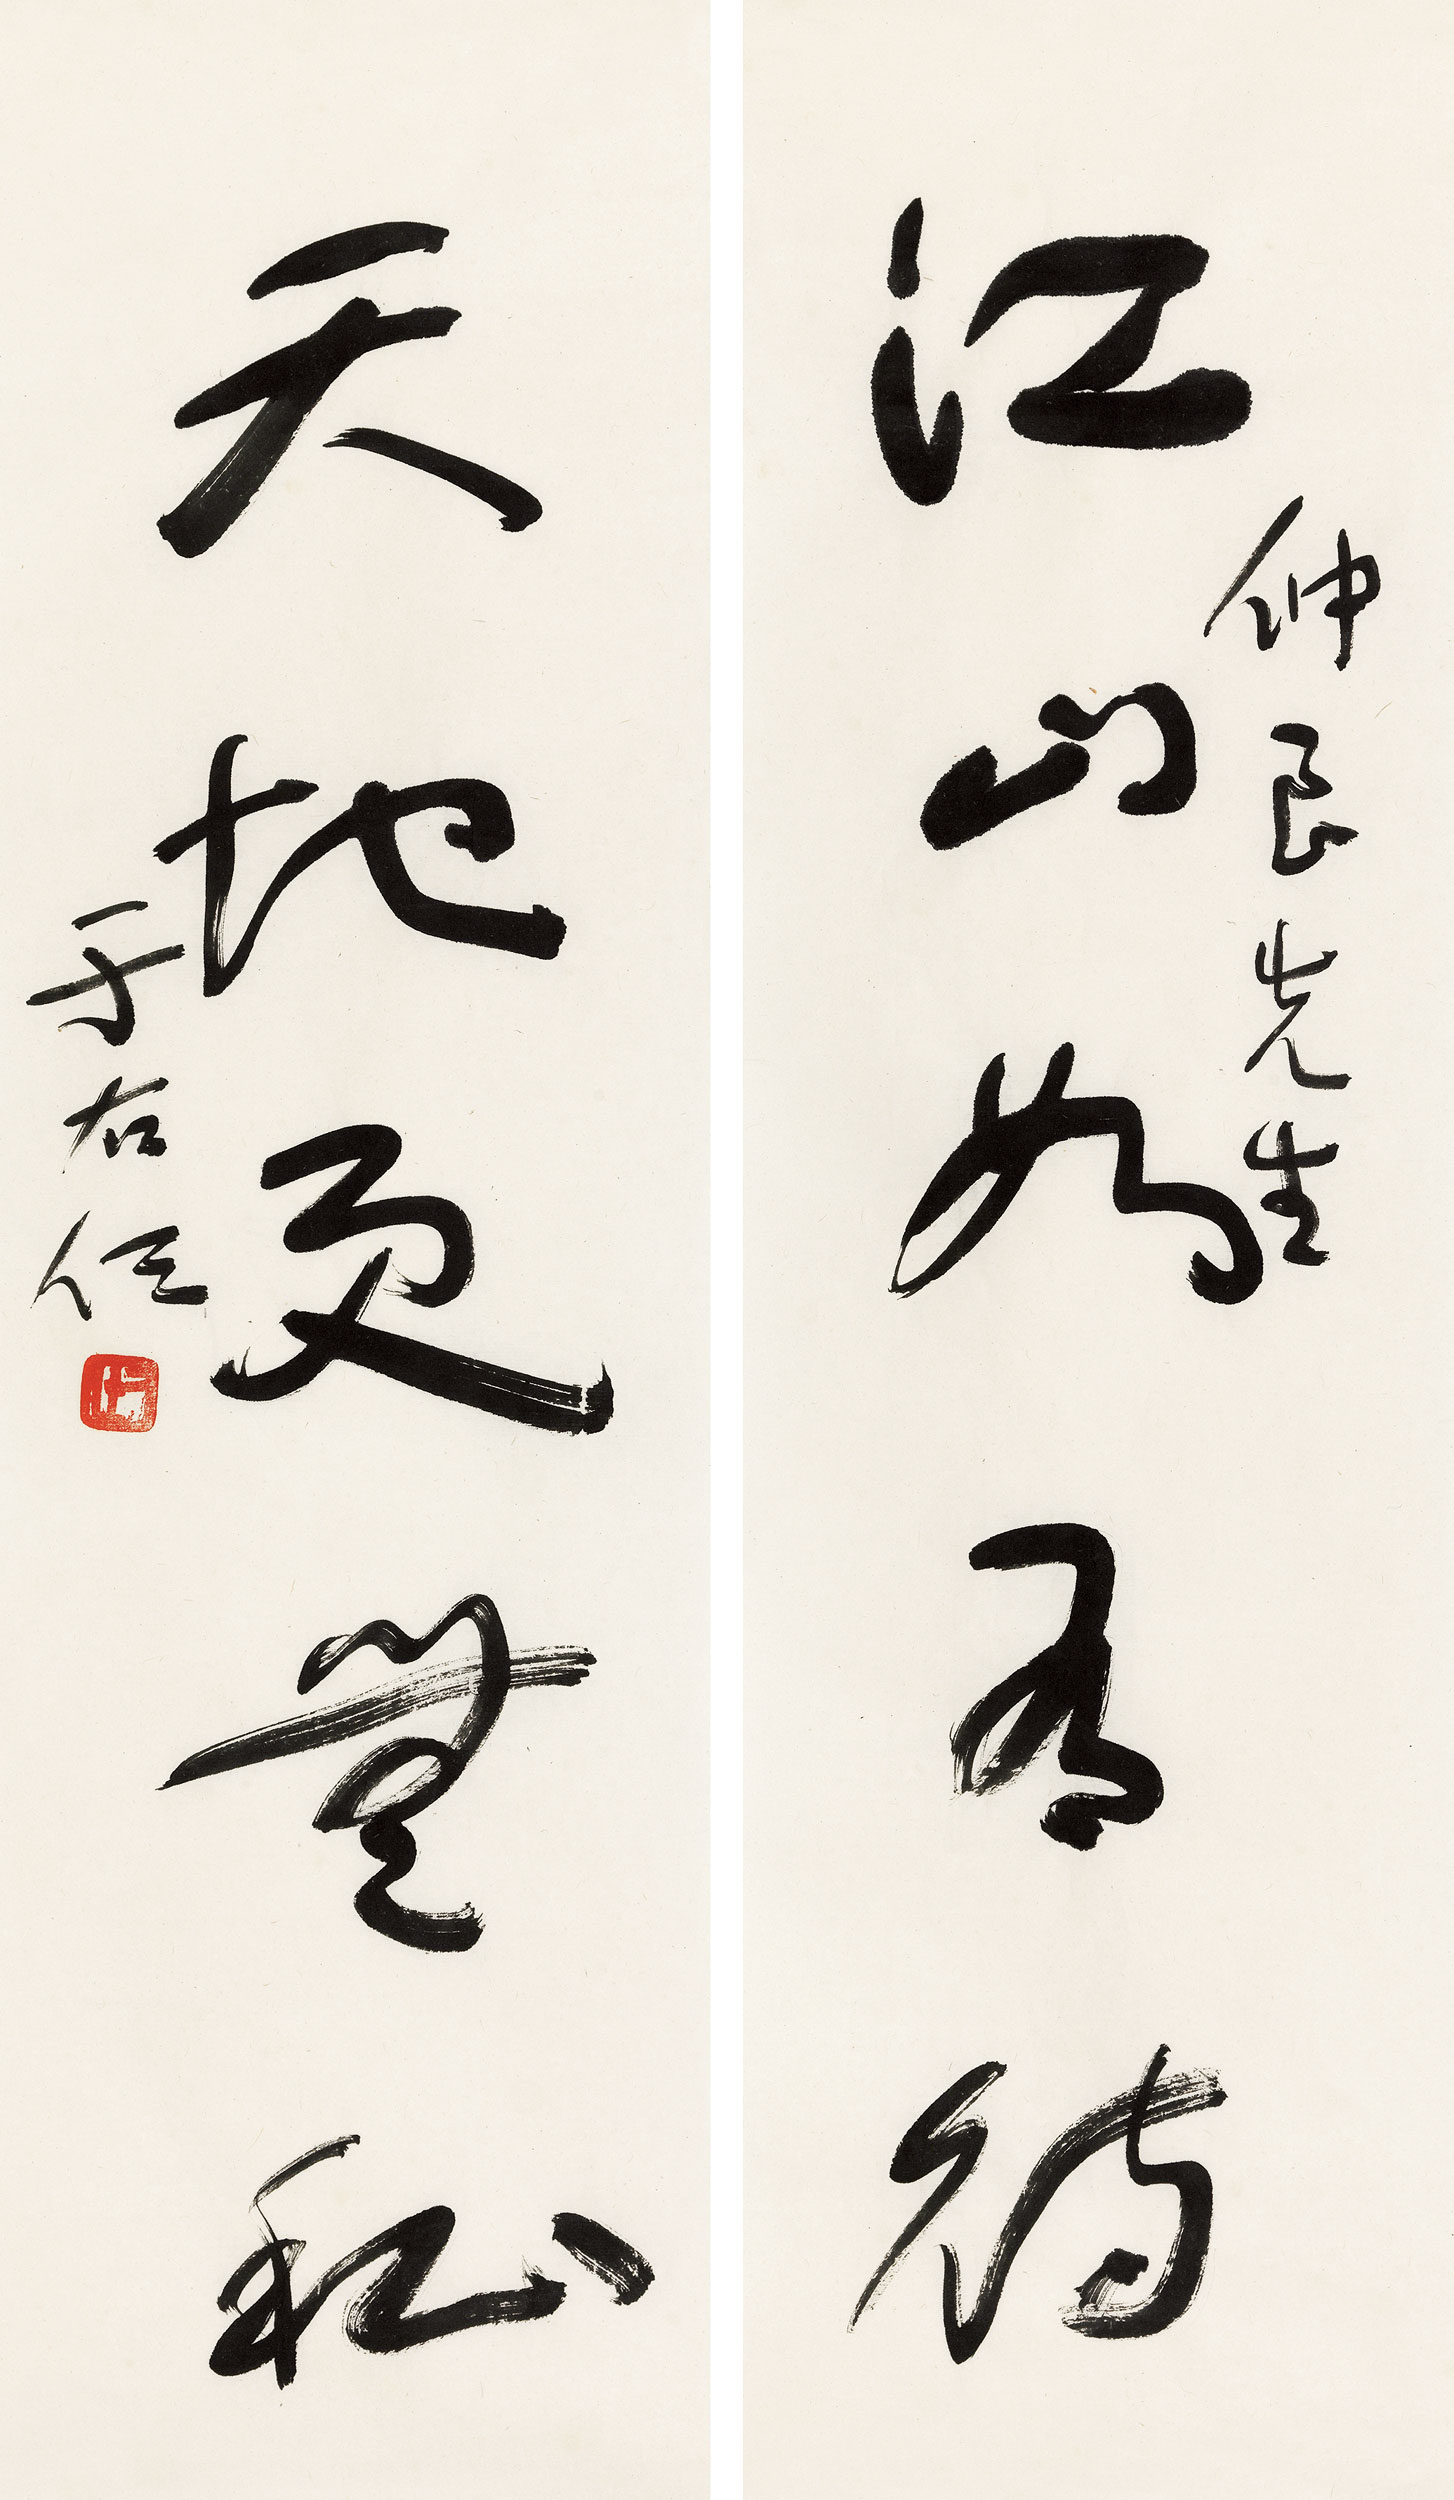 江山如有待
仲良先生
天地更無私
于右任